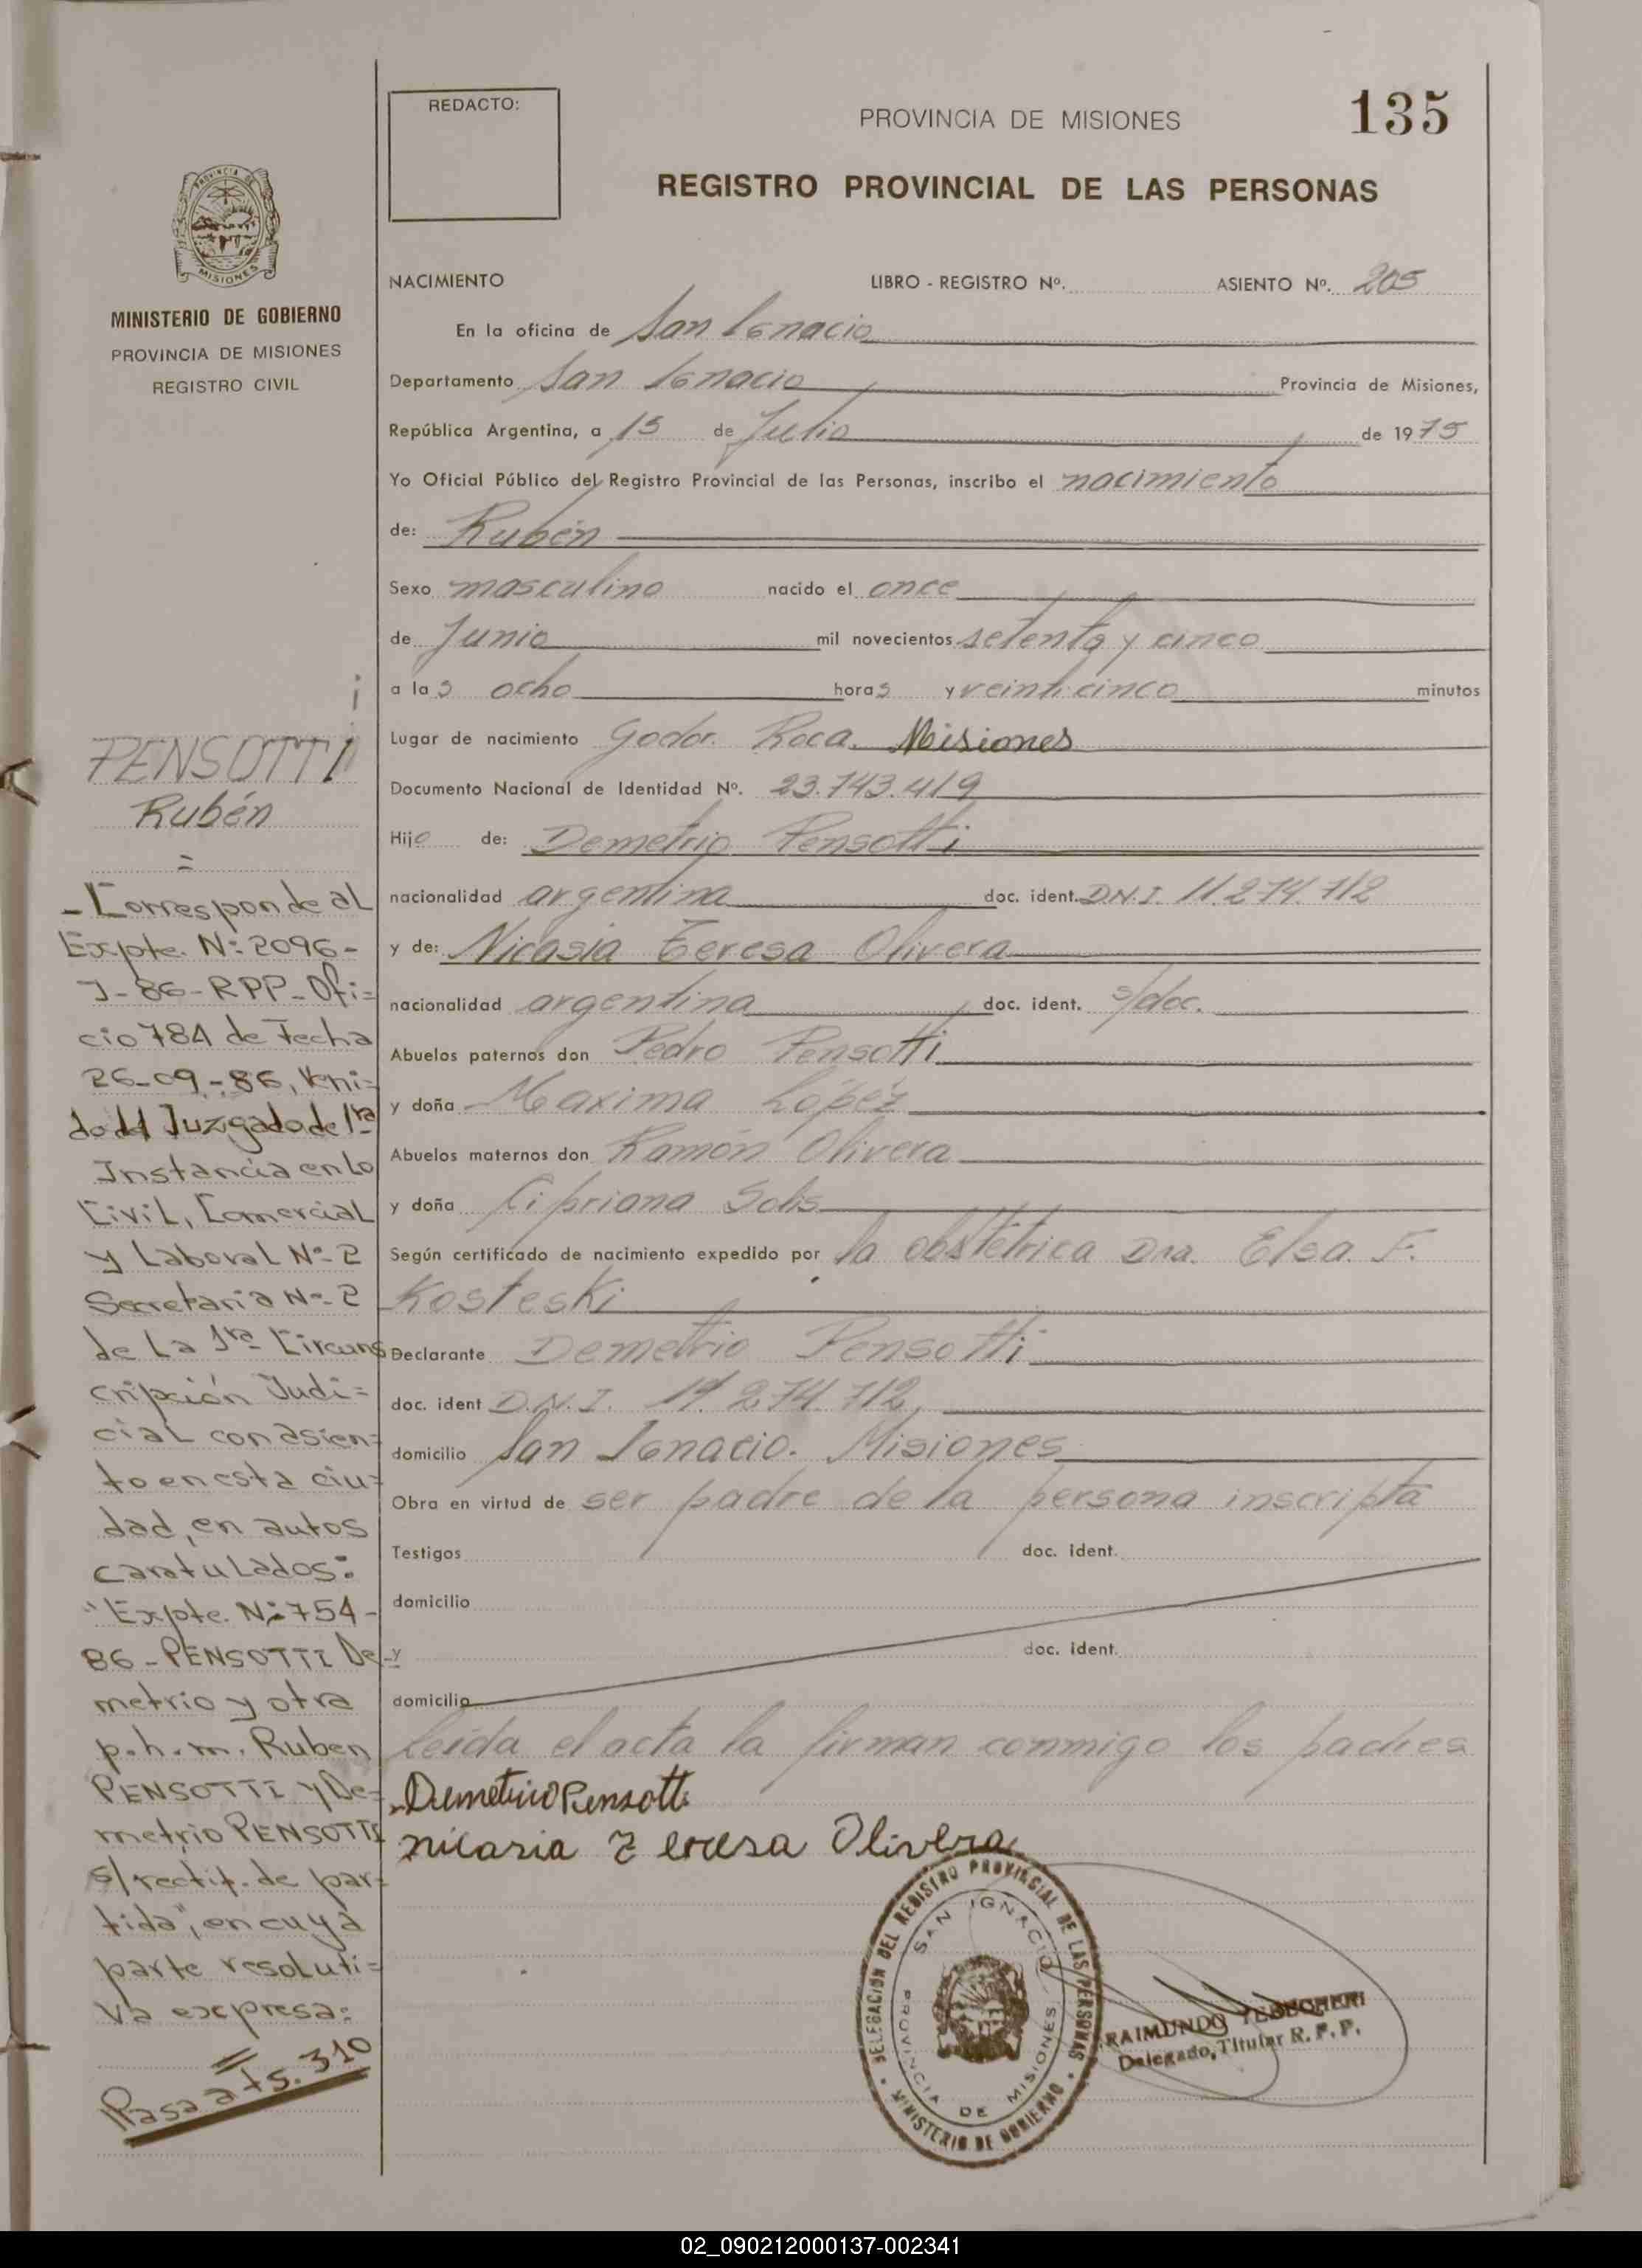 REDACTO:
PROVINCIA DE MISIONES
135
REGISTRO PROVINCIAL DE LAS PERSONAS
PROVINCIA DE
MISIONES
MINISTERIO DE GOBIERNO
PROVINCIA DE MISIONES
REGISTRO CIVIL
NACIMIENTO LIBRO - REGISTRO Nº. ASIENTO Nº. 205
En la oficina de San Ignacio
Departamento San Ignacio Provincia de Misiones,
República Argentina, a 15 de Julio de 1975
Yo Oficial Público del Registro Provincial de las Personas, inscribo el nacimiento
de: Rubén
Sexo masculino nacido el once
de Junio mil novecientos setenta y cinco
a las ocho horas y veinticinco minutos
Lugar de nacimiento Godor. Roca. Misiones
Documento Nacional de Identidad Nº. 23.743.419
Hijo de: Demetrio Pensotti
nacionalidad argentina doc. ident. D.N.I. 11.274.712
y de: Nicasia Teresa Olivera
nacionalidad argentina doc. ident. s/doc.
Abuelos paternos don Pedro Pensotti
y doña Maxima López
Abuelos maternos don Ramón Olivera
y doña Cipriana Solis
Según certificado de nacimiento expedido por la obstétrica Dra. Elsa. F.
Kosteski
Declarante Demetrio Pensotti
doc. ident D.N.I. 274.712,
domicilio San Ignacio. Misiones
Obra en virtud de ser padre de la persona inscripta
Testigos doc. ident.
domicilio
y doc. ident.
domicilio
Leída el acta la firman conmigo los padres
Demetrio Pensotti
nicasia Teresa Olivera
DELEGACION DEL REGISTRO PROVINCIAL DE LAS PERSONAS
MINISTERIO DE GOBIERNO
SAN IGNACIO
PROVINCIA DE MISIONES
RAIMUNDO
Delegado, Titular R. P. P.
PENSOTTI
Rubén
=
- Corresponde al
Expte. Nº: 2096-
J-86-RPP-Ofi=
cio 784 de Fecha
26-09-86, veni=
do del Juzgado de 1ra
Instancia en lo
Civil, Comercial
y Laboral Nº 2
Secretaria Nº 2
de La 1ra Circuns
cripción Judi=
cial con asien=
to en esta ciu=
dad, en autos
caratulados:
"Expte. Nº: 754-
86-PENSOTTI De-
metrio y otra
p.h.m. Ruben
PENSOTTI y De=
metrio PENSOTTI
s/rectif. de par=
tida", en cuya
parte resoluti=
va expresa:
=
Pasa a fs. 310
02_090212000137-002341